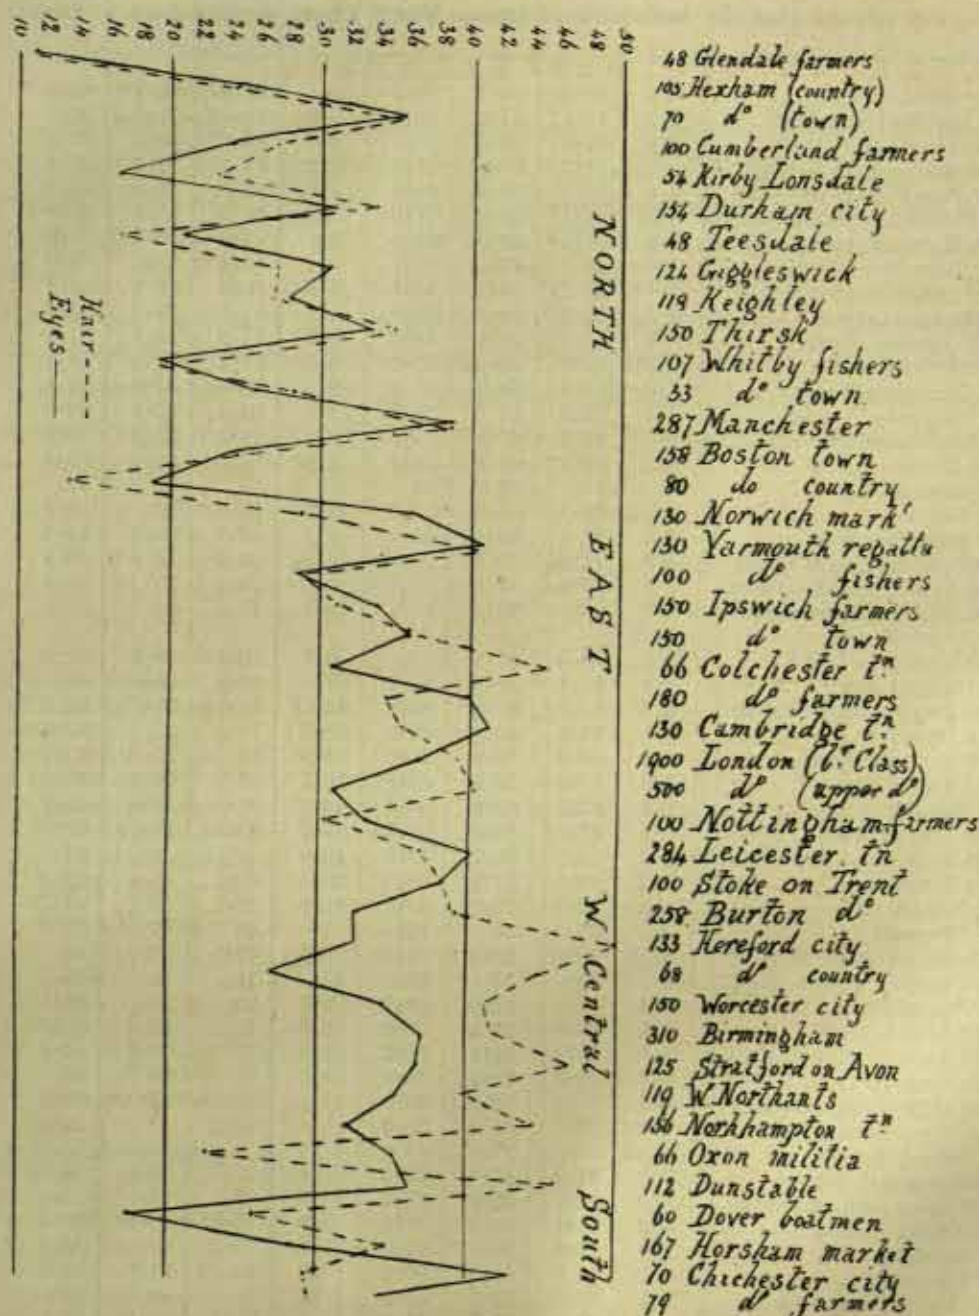 10 12 14 16 18 20 22 24 26 28 30 32 34 36 38 40 42 44 46 48 50
48 Glendale farmers
105 Hexham (country)
70 do (town)
100 Cumberland farmers
54 Kirby Lonsdale
154 Durham city
48 Teesdale
124 Giggleswick
119 Keighley
150 Thirsk
107 Whitby fishers
53 do town
287 Manchester
158 Boston town
80 do country
130 Norwich markt
130 Yarmouth regatta
100 do fishers
150 Ipswich farmers
150 do town
66 Colchester tn
180 do farmers
130 Cambridge tn
1900 London (lr Class)
500 do (upper do)
100 Nottingham farmers
284 Leicester tn
100 Stoke on Trent
258 Burton do
133 Hereford city
68 do country
150 Worcester city
310 Birmingham
125 Stratford on Avon
119 W Northants
156 Norkhampton tn
66 Oxon militia
112 Dunstable
60 Dover boatmen
167 Horsham market
70 Chichester city
79 do farmers
NORTH
EAST
W Central
South
Hair
Eyes